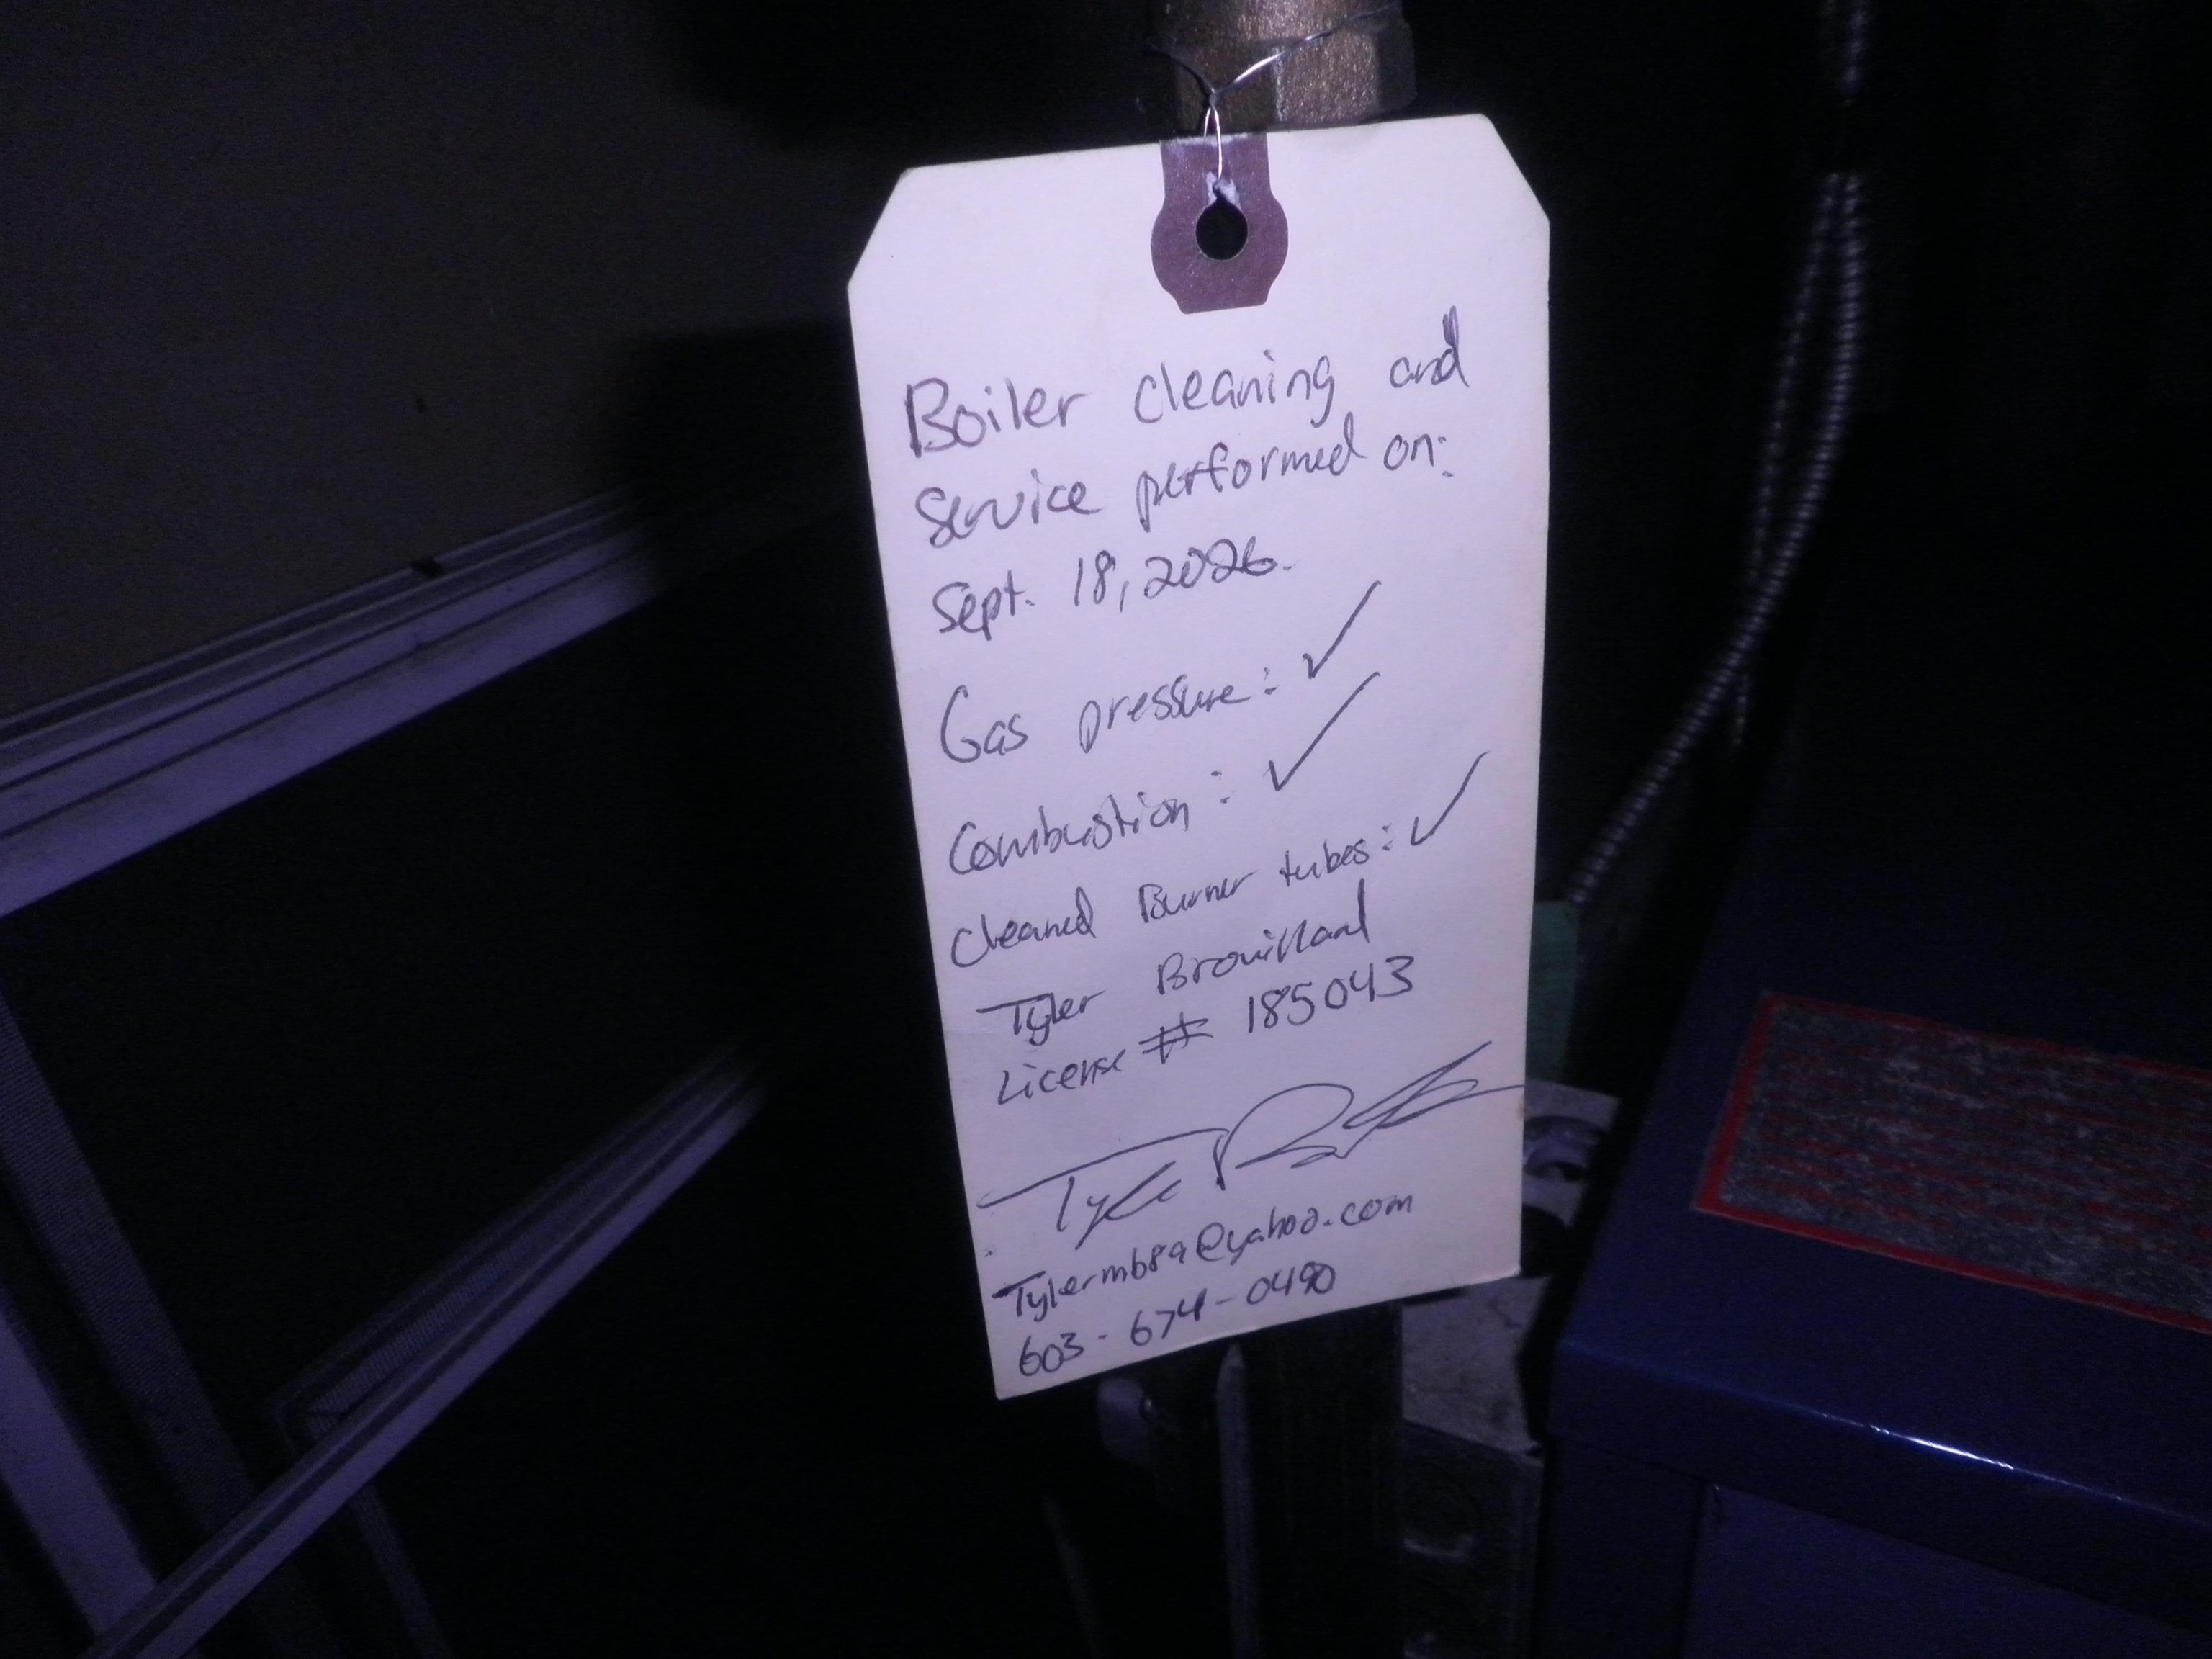 Boiler cleaning and
Service performed on:
Sept. 18, 2026.
Gas pressure: ✓
Combustion: ✓
Cleaned Burner tubes: ✓
Tyler Brouillard
License # 185043
Tylermb89@yahoo.com
603-674-0490